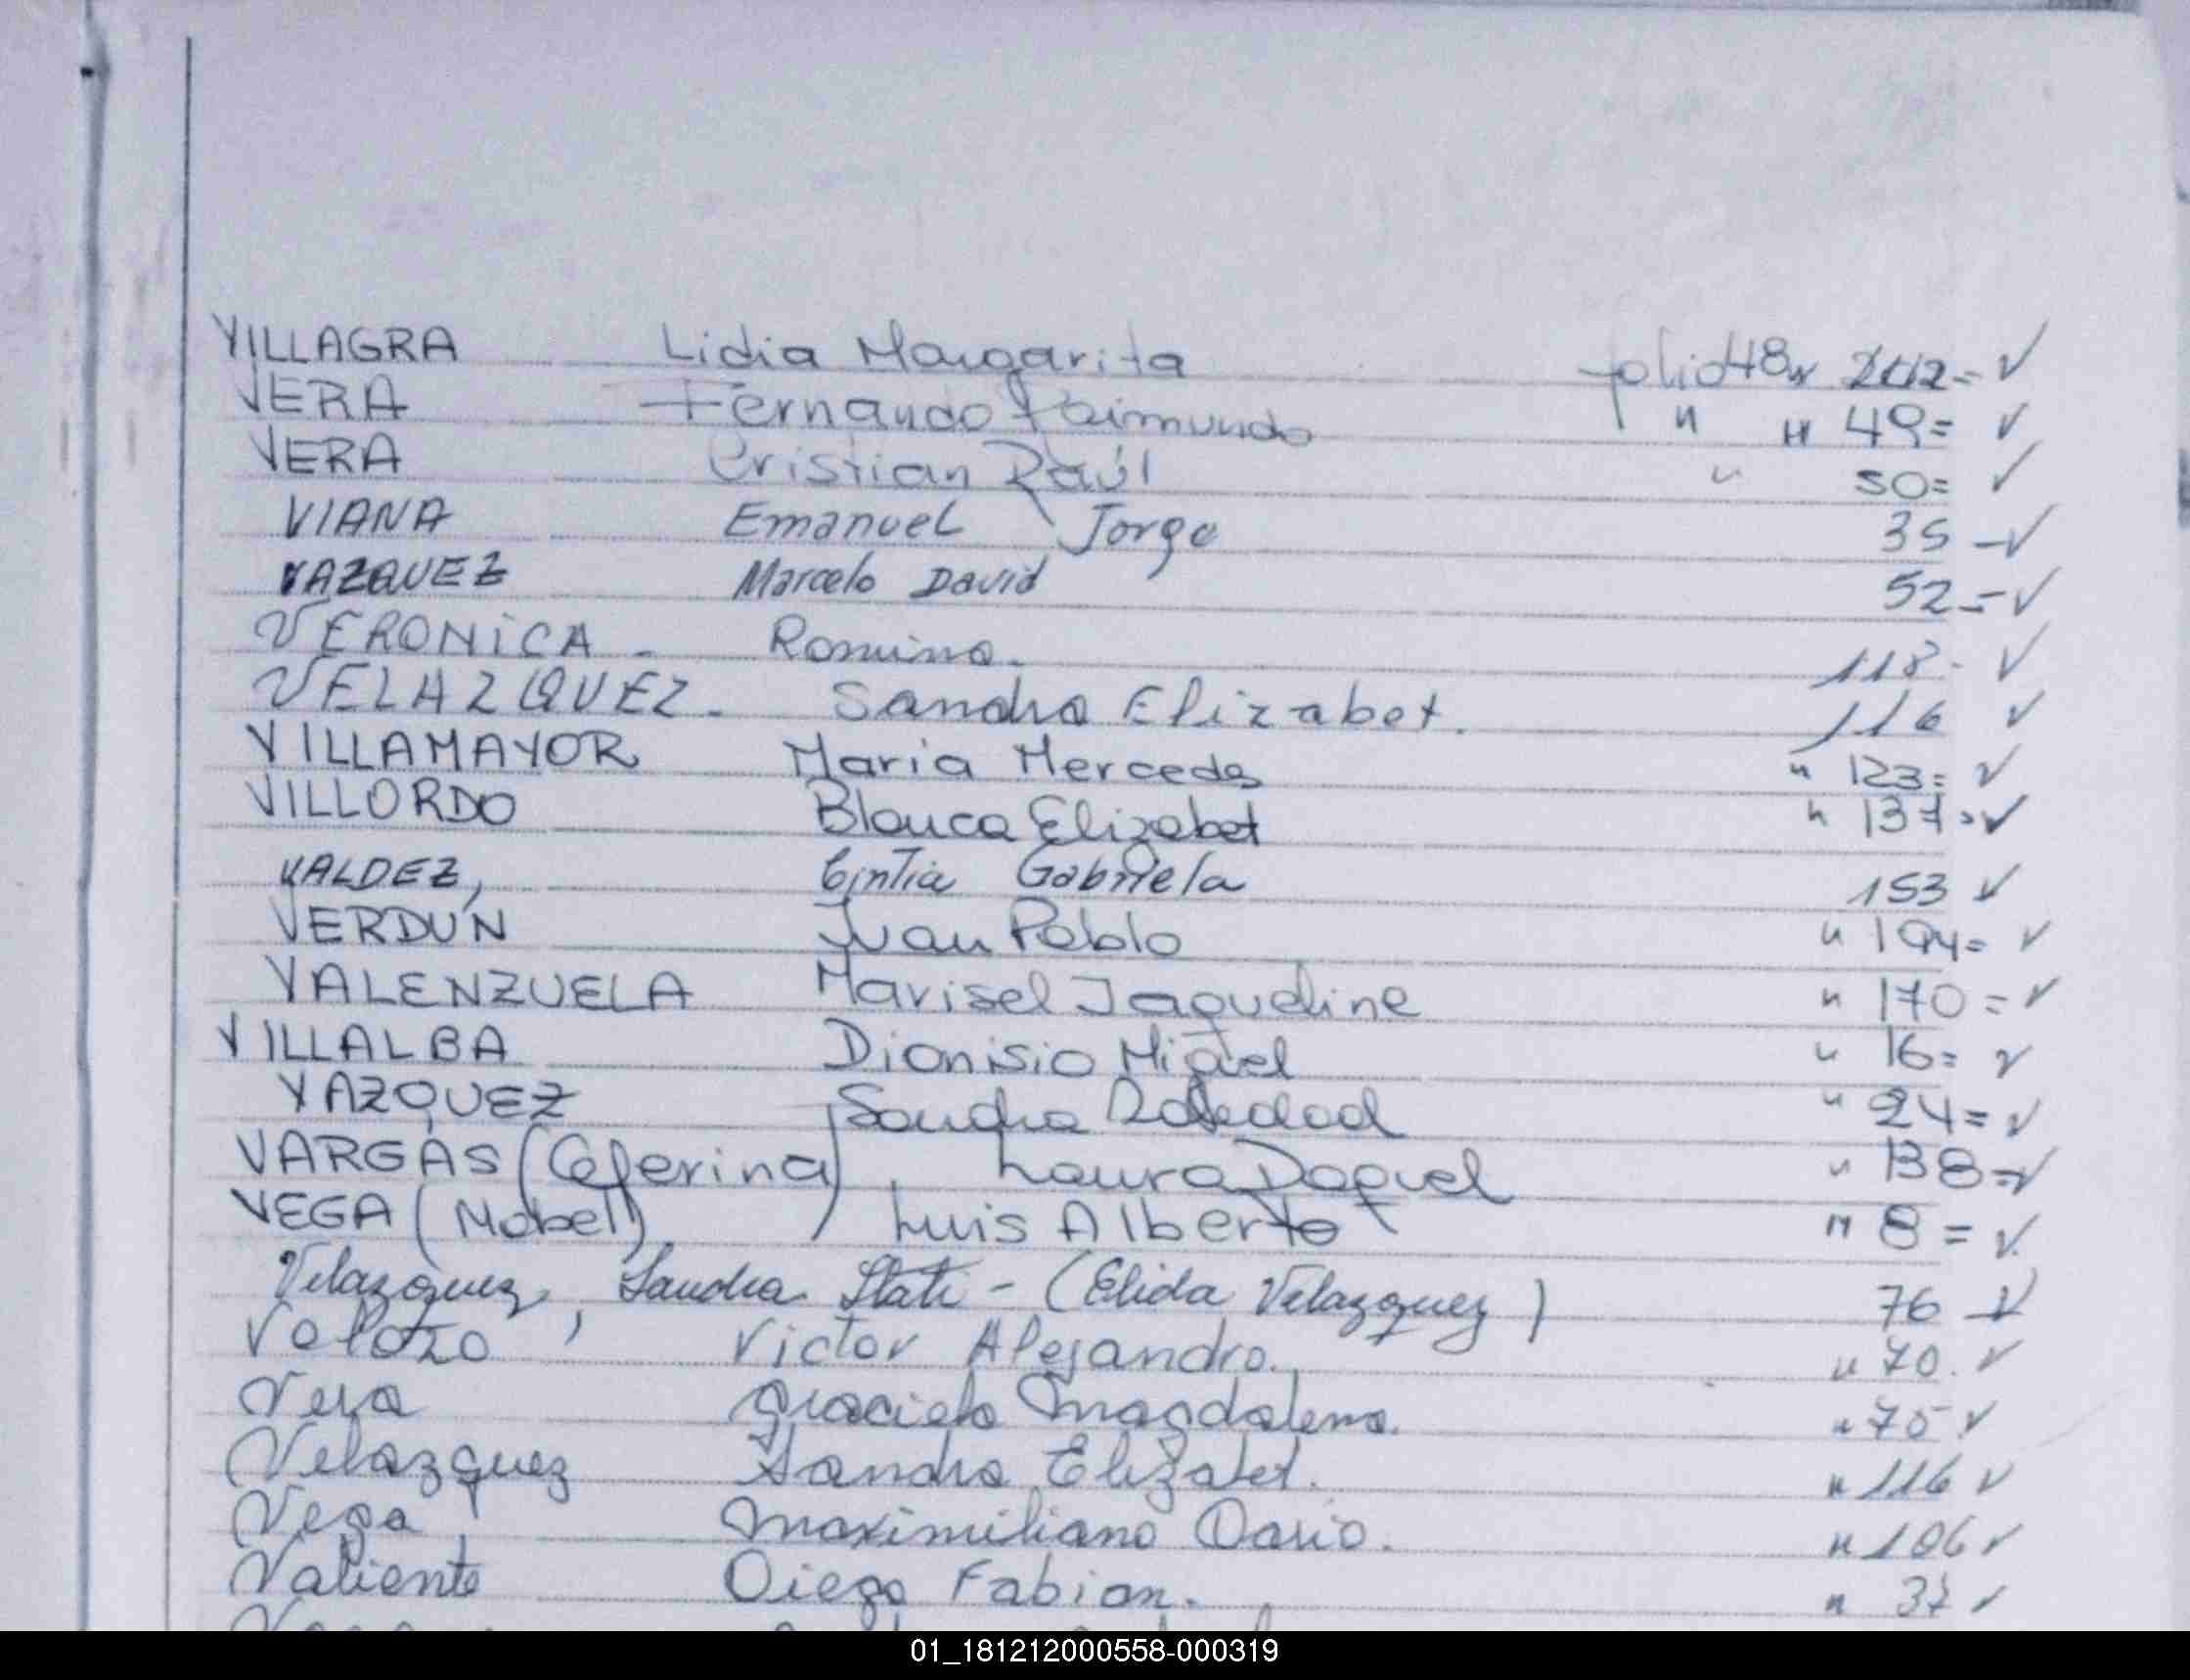 VILLAGRA Lidia Margarita folio 48 y 202= ✓
VERA Fernando Raimundo " " 49= ✓
VERA Cristian Raúl " 50= ✓
VIANA Emanuel Jorge 35 - ✓
VAZQUEZ Marcelo David 52 = ✓
VERONICA - Romina. 118 - ✓
VELAZQUEZ - Sandra Elizabet. 116 ✓
VILLAMAYOR Maria Mercedes " 123= ✓
VILLORDO Blanca Elizabet " 137= ✓
VALDEZ, Cintia Gabriela 153 ✓
VERDÚN Juan Pablo " 194= ✓
VALENZUELA Marisel Jaqueline " 170= ✓
VILLALBA Dionisio Miguel " 16= ✓
VAZQUEZ Sandra Soledad " 24= ✓
VARGAS (Ceferina) Laura Raquel " 138= ✓
VEGA (Mabel) Luis Alberto " 8= ✓
Velazquez, Sandra - (Elida Velazquez) 76 - ✓
Velozo Victor Alejandro. " 70. ✓
Vera Graciela Magdalena. " 75 ✓
Velazquez Sandra Elizabet. " 116 ✓
Vega Maximiliano Dario. " 106 ✓
Valiente Diego Fabian. " 37 ✓
01_181212000558-000319